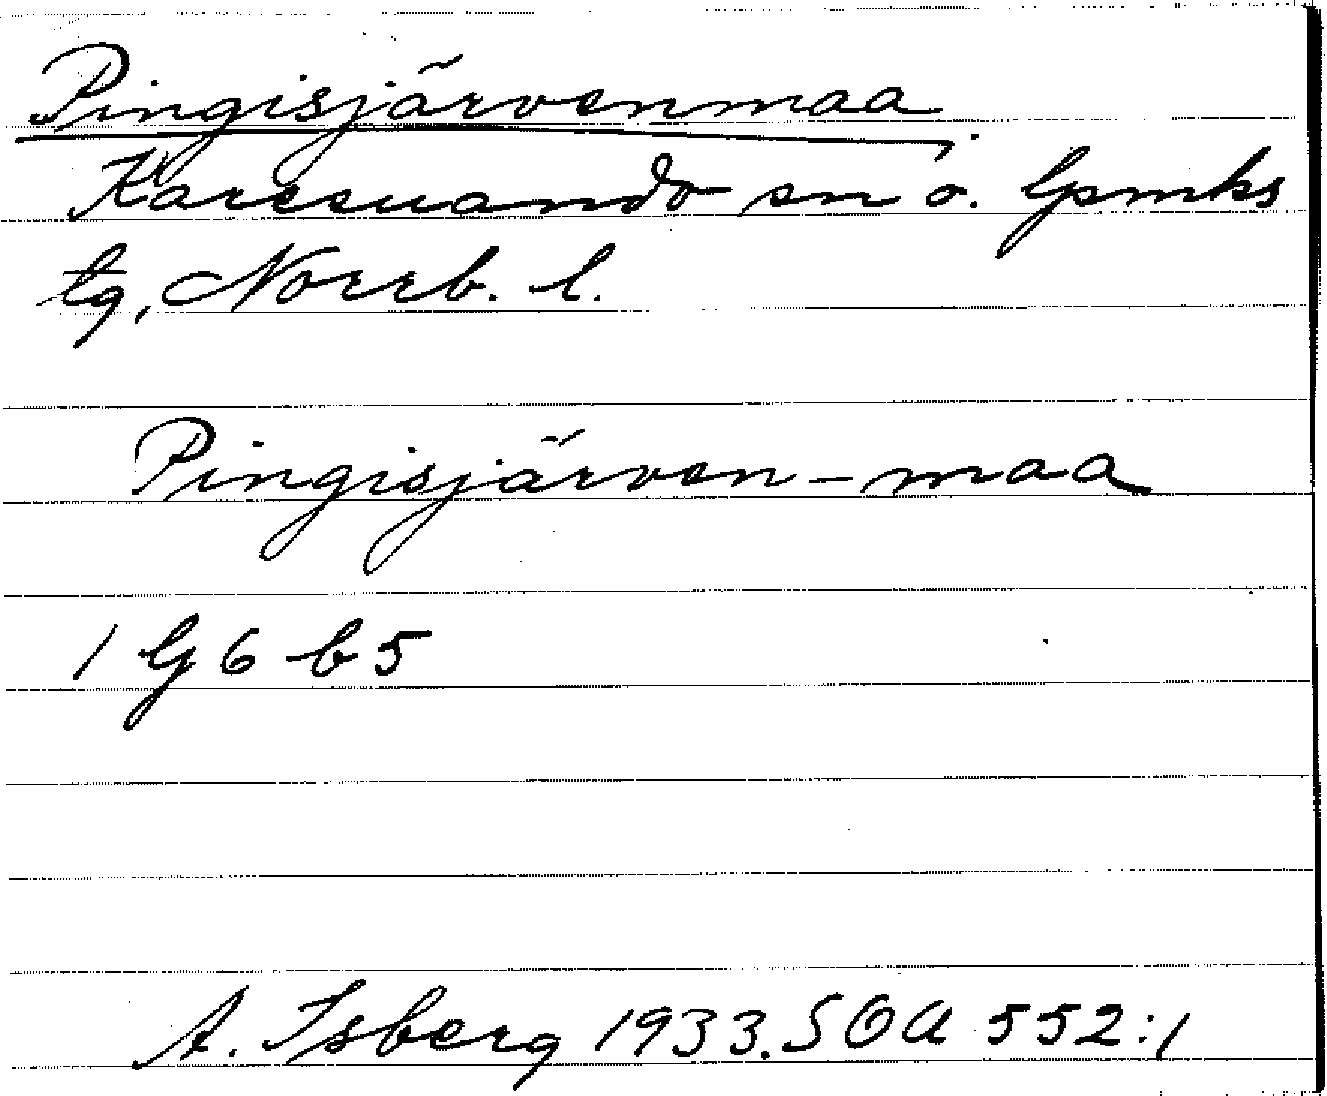 Pingisjärvenmaa
Karesuando sn o. lpmks
tg, Norrb. l.
Pingisjärven-maa
1 G 6 b 5
A. Isberg 1933. SOA 552:1